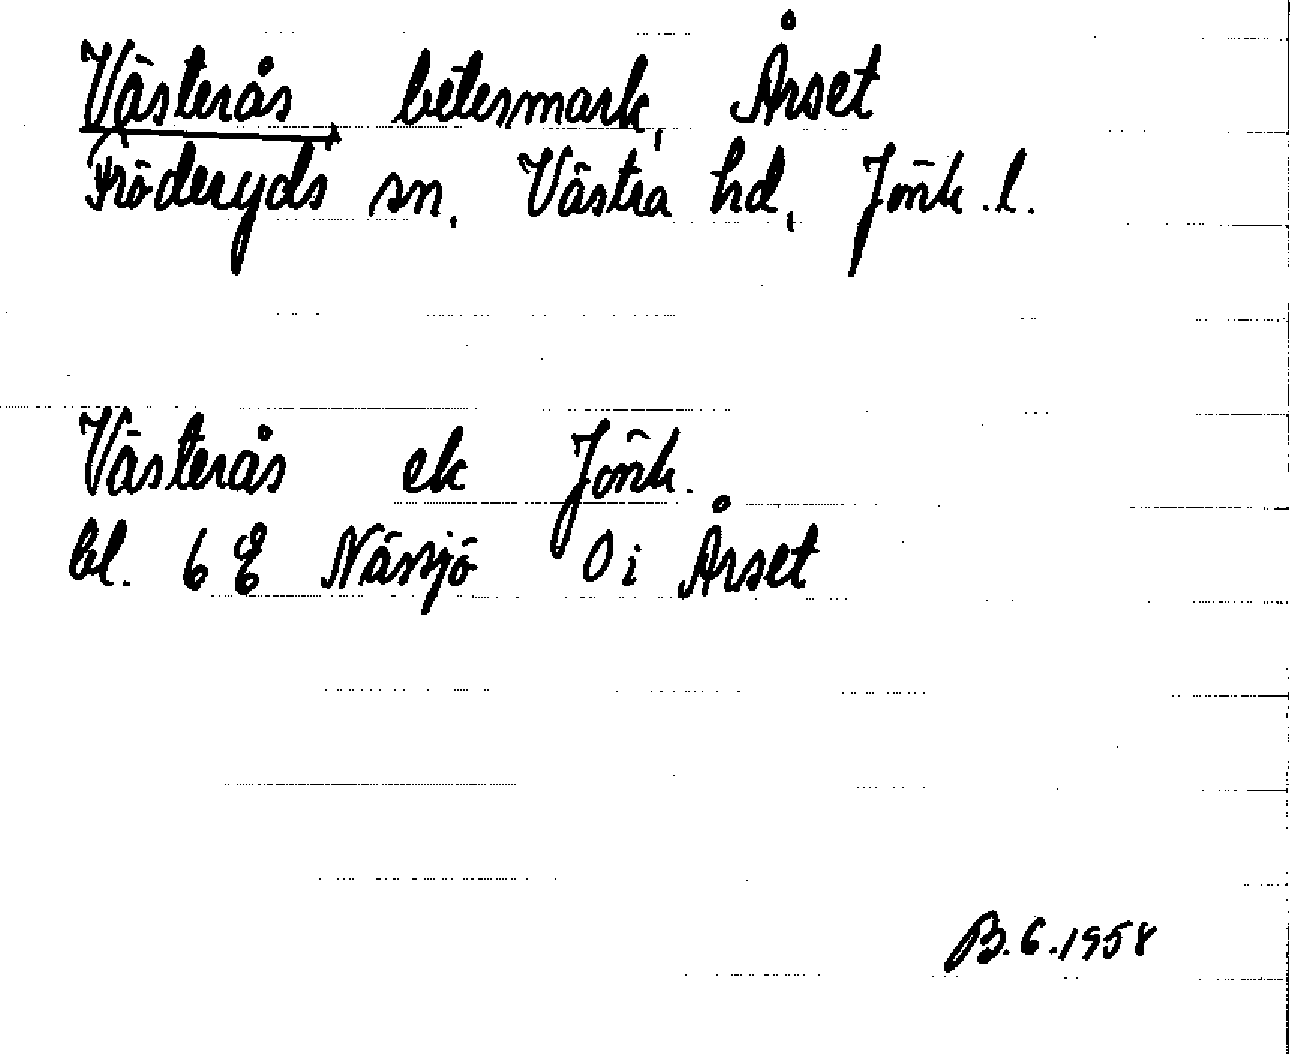 Västerås betesmark, Årset
Fröderyds sn, Västra hd, Jönk.l.
Västerås ek Jönk.
bl. 6 E Nässjö O i Årset
B.G.1958